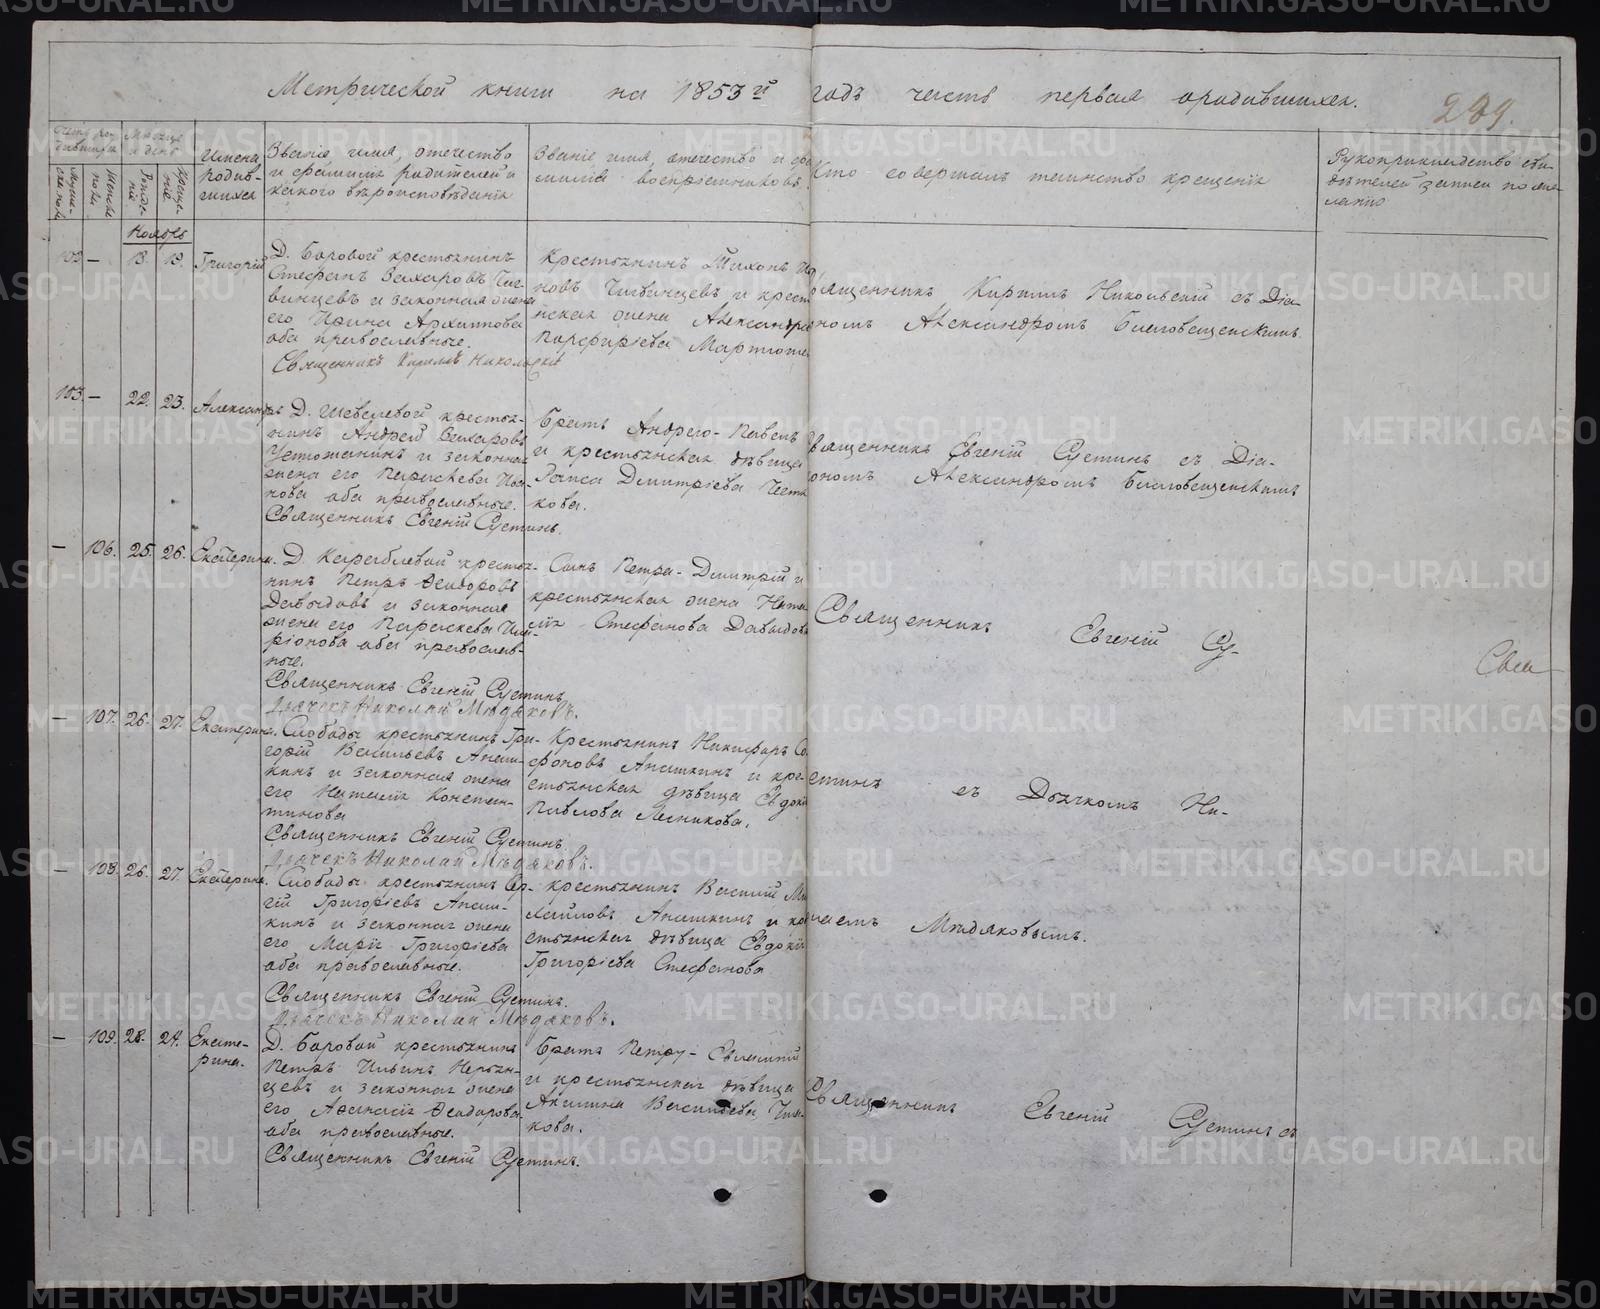 Метрической книги на 1853й годъ часть первая о родившихся.
289.
Счетъ ро-
дившихся
Мѣсяцъ
и день
Имена
родив-
шихся
Званіе, имя, отечество
и фамилія родителей и
какого вѣроисповѣданія
Званіе имя, отечество и фа-
милія воспріемниковъ.
Кто совершалъ таинство крещенія
Рукоприкладство сви-
дѣтелей записи по же-
ланію
Ноябрь
— 13. 19. Григорій
Д. Боровой крестьянинъ
Стефанъ Захаровъ
и законная жена
его Ирина Архиппова
оба православные.
Священникъ Кириллъ Никольскій
Крестьянинъ Тихонъ Ива-
новъ и крестья-
нская жена Александра
Порфиріева
Священникъ Кириллъ Никольскій съ Діа-
кономъ Александромъ Благовещенскимъ.
103. — 22. 23. Александръ
Д. Шевелевой крестья-
нинъ Андрей Захаровъ
и законная
жена его Параскева Ива-
нова оба православные.
Священникъ Евгеній Сустинъ.
Братъ Андрею - Павелъ
и крестьянская дѣвица
Раиса Димитріева
кова.
Священникъ Евгеній Сустинъ съ Діа-
кономъ Александромъ Благовещенскимъ
— 106. 25. 26. Екатерина.
Д. Кораблевой крестья-
нинъ Петръ Ѳеодоровъ
Давыдовъ и законная
жена его Параскева Ила-
ріонова оба православ-
ные.
Священникъ Евгеній Сустинъ
Дьячекъ Николай Мѣдяковъ.
Сынъ Петра - Димитрій и
крестьянская жена Ната-
лія Стефанова Давыдова
Священникъ Евгеній Су-
Сви
— 107. 26. 27. Екатерина.
Слободы крестьянинъ Гри-
горій Васильевъ Апаш-
кинъ и законная жена
его Наталія Констан-
тинова
Священникъ Евгеній Сустинъ
Дьячекъ Николай Мѣдяковъ.
Крестьянинъ Никифоръ Со-
фоновъ Апашкинъ и кре-
стьянская дѣвица Евдокія
Павлова Лесникова.
стинъ съ Дьячкомъ Ни-
— 108. 26. 27. Екатерина.
Слободы крестьянинъ Сер-
гій Григорьевъ Апаш-
кинъ и законная жена
его Марія Григорьева
оба православные.
Священникъ Евгеній Сустинъ.
Дьячекъ Николай Мѣдяковъ.
крестьянинъ Василій Ми-
хайловъ Апашкинъ и кре-
стьянская дѣвица Евдокія
Григоріева Стефанова
колаемъ Мѣдяковымъ.
— 109. 28. 29. Екате-
рина.
Д. Боровой крестьянинъ
Петръ Ильинъ
и законная жена
его Аѳанасія Ѳеодорова
оба православные.
Священникъ Евгеній Сустинъ.
Братъ Петру -
и крестьянская дѣвица
Акилина Васильева
кова.
Священникъ Евгеній Сустинъ съ
METRIKI.GASO-URAL.RU